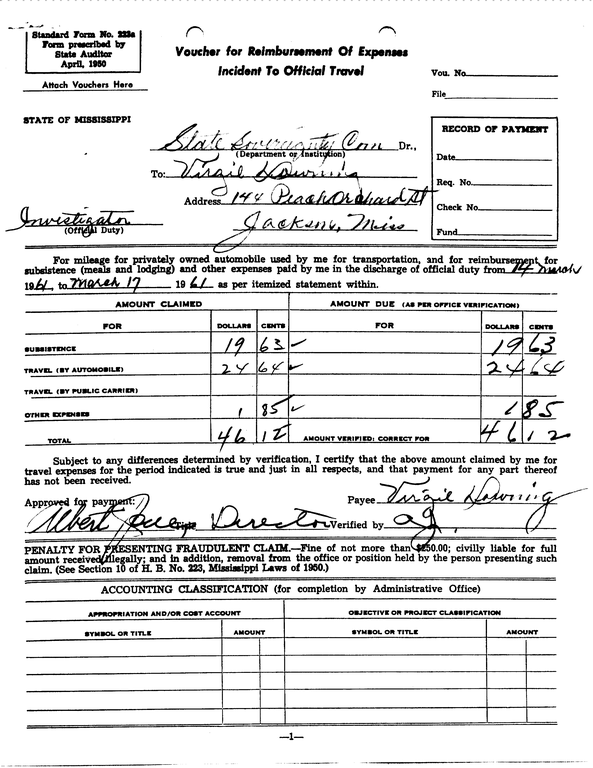 Standard Form No. 223a
Form prescribed by
State Auditor
April, 1950
Attach Vouchers Here
Voucher for Reimbursement Of Expenses
Incident To Official Travel
Vou. No.
File
STATE OF MISSISSIPPI
RECORD OF PAYMENT
Date
Req. No.
Check No.
Fund
State Sovereignty Com Dr.,
(Department or Institution)
To: Virgil Downing
Address 144 Peach Orchard St
Jackson, Miss
Investigator
(Official Duty)
For mileage for privately owned automobile used by me for transportation, and for reimbursement for
subsistence (meals and lodging) and other expenses paid by me in the discharge of official duty from 14 March
1961, to March 17 1961 as per itemized statement within.
AMOUNT CLAIMED AMOUNT DUE (AS PER OFFICE VERIFICATION)
FOR DOLLARS CENTS FOR DOLLARS CENTS
SUBSISTENCE 19 63 ✓ 19 63
TRAVEL (BY AUTOMOBILE) 24 64 ✓ 24 64
TRAVEL (BY PUBLIC CARRIER)
OTHER EXPENSES 1 85 ✓ 1 85
TOTAL 46 12 AMOUNT VERIFIED; CORRECT FOR 46 12
Subject to any differences determined by verification, I certify that the above amount claimed by me for
travel expenses for the period indicated is true and just in all respects, and that payment for any part thereof
has not been received.
Approved for payment: Payee Virgil Downing
Albert Jones Title Director Verified by
PENALTY FOR PRESENTING FRAUDULENT CLAIM.—Fine of not more than $250.00; civilly liable for full
amount received illegally; and in addition, removal from the office or position held by the person presenting such
claim. (See Section 10 of H. B. No. 223, Mississippi Laws of 1950.)
ACCOUNTING CLASSIFICATION (for completion by Administrative Office)
APPROPRIATION AND/OR COST ACCOUNT OBJECTIVE OR PROJECT CLASSIFICATION
SYMBOL OR TITLE AMOUNT SYMBOL OR TITLE AMOUNT
—1—